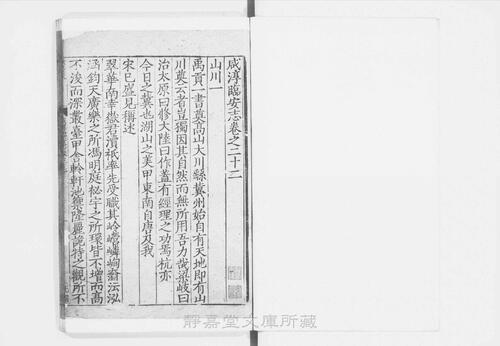 咸淳臨安志卷之二十二
山川一
禹貢一書奠高山大川繇冀州始自有天地即有山
川奠云者豈獨因其自然而無所用吾力哉梁岐曰
治太原曰修大陸曰作蓋有經理之功焉杭亦
今日之冀也湖山之美甲東南自唐及我
宋已盛見稱述
翠華南幸嶽君瀆祇率先受職其岭巆嶙峋瀹沄泓
涵鈞天廣樂之所馮明庭祕宇之所環皆不增而高
不浚而深叢臺甲舍軨軒池籞隆
詭特之觀所不
靜嘉堂文庫所藏